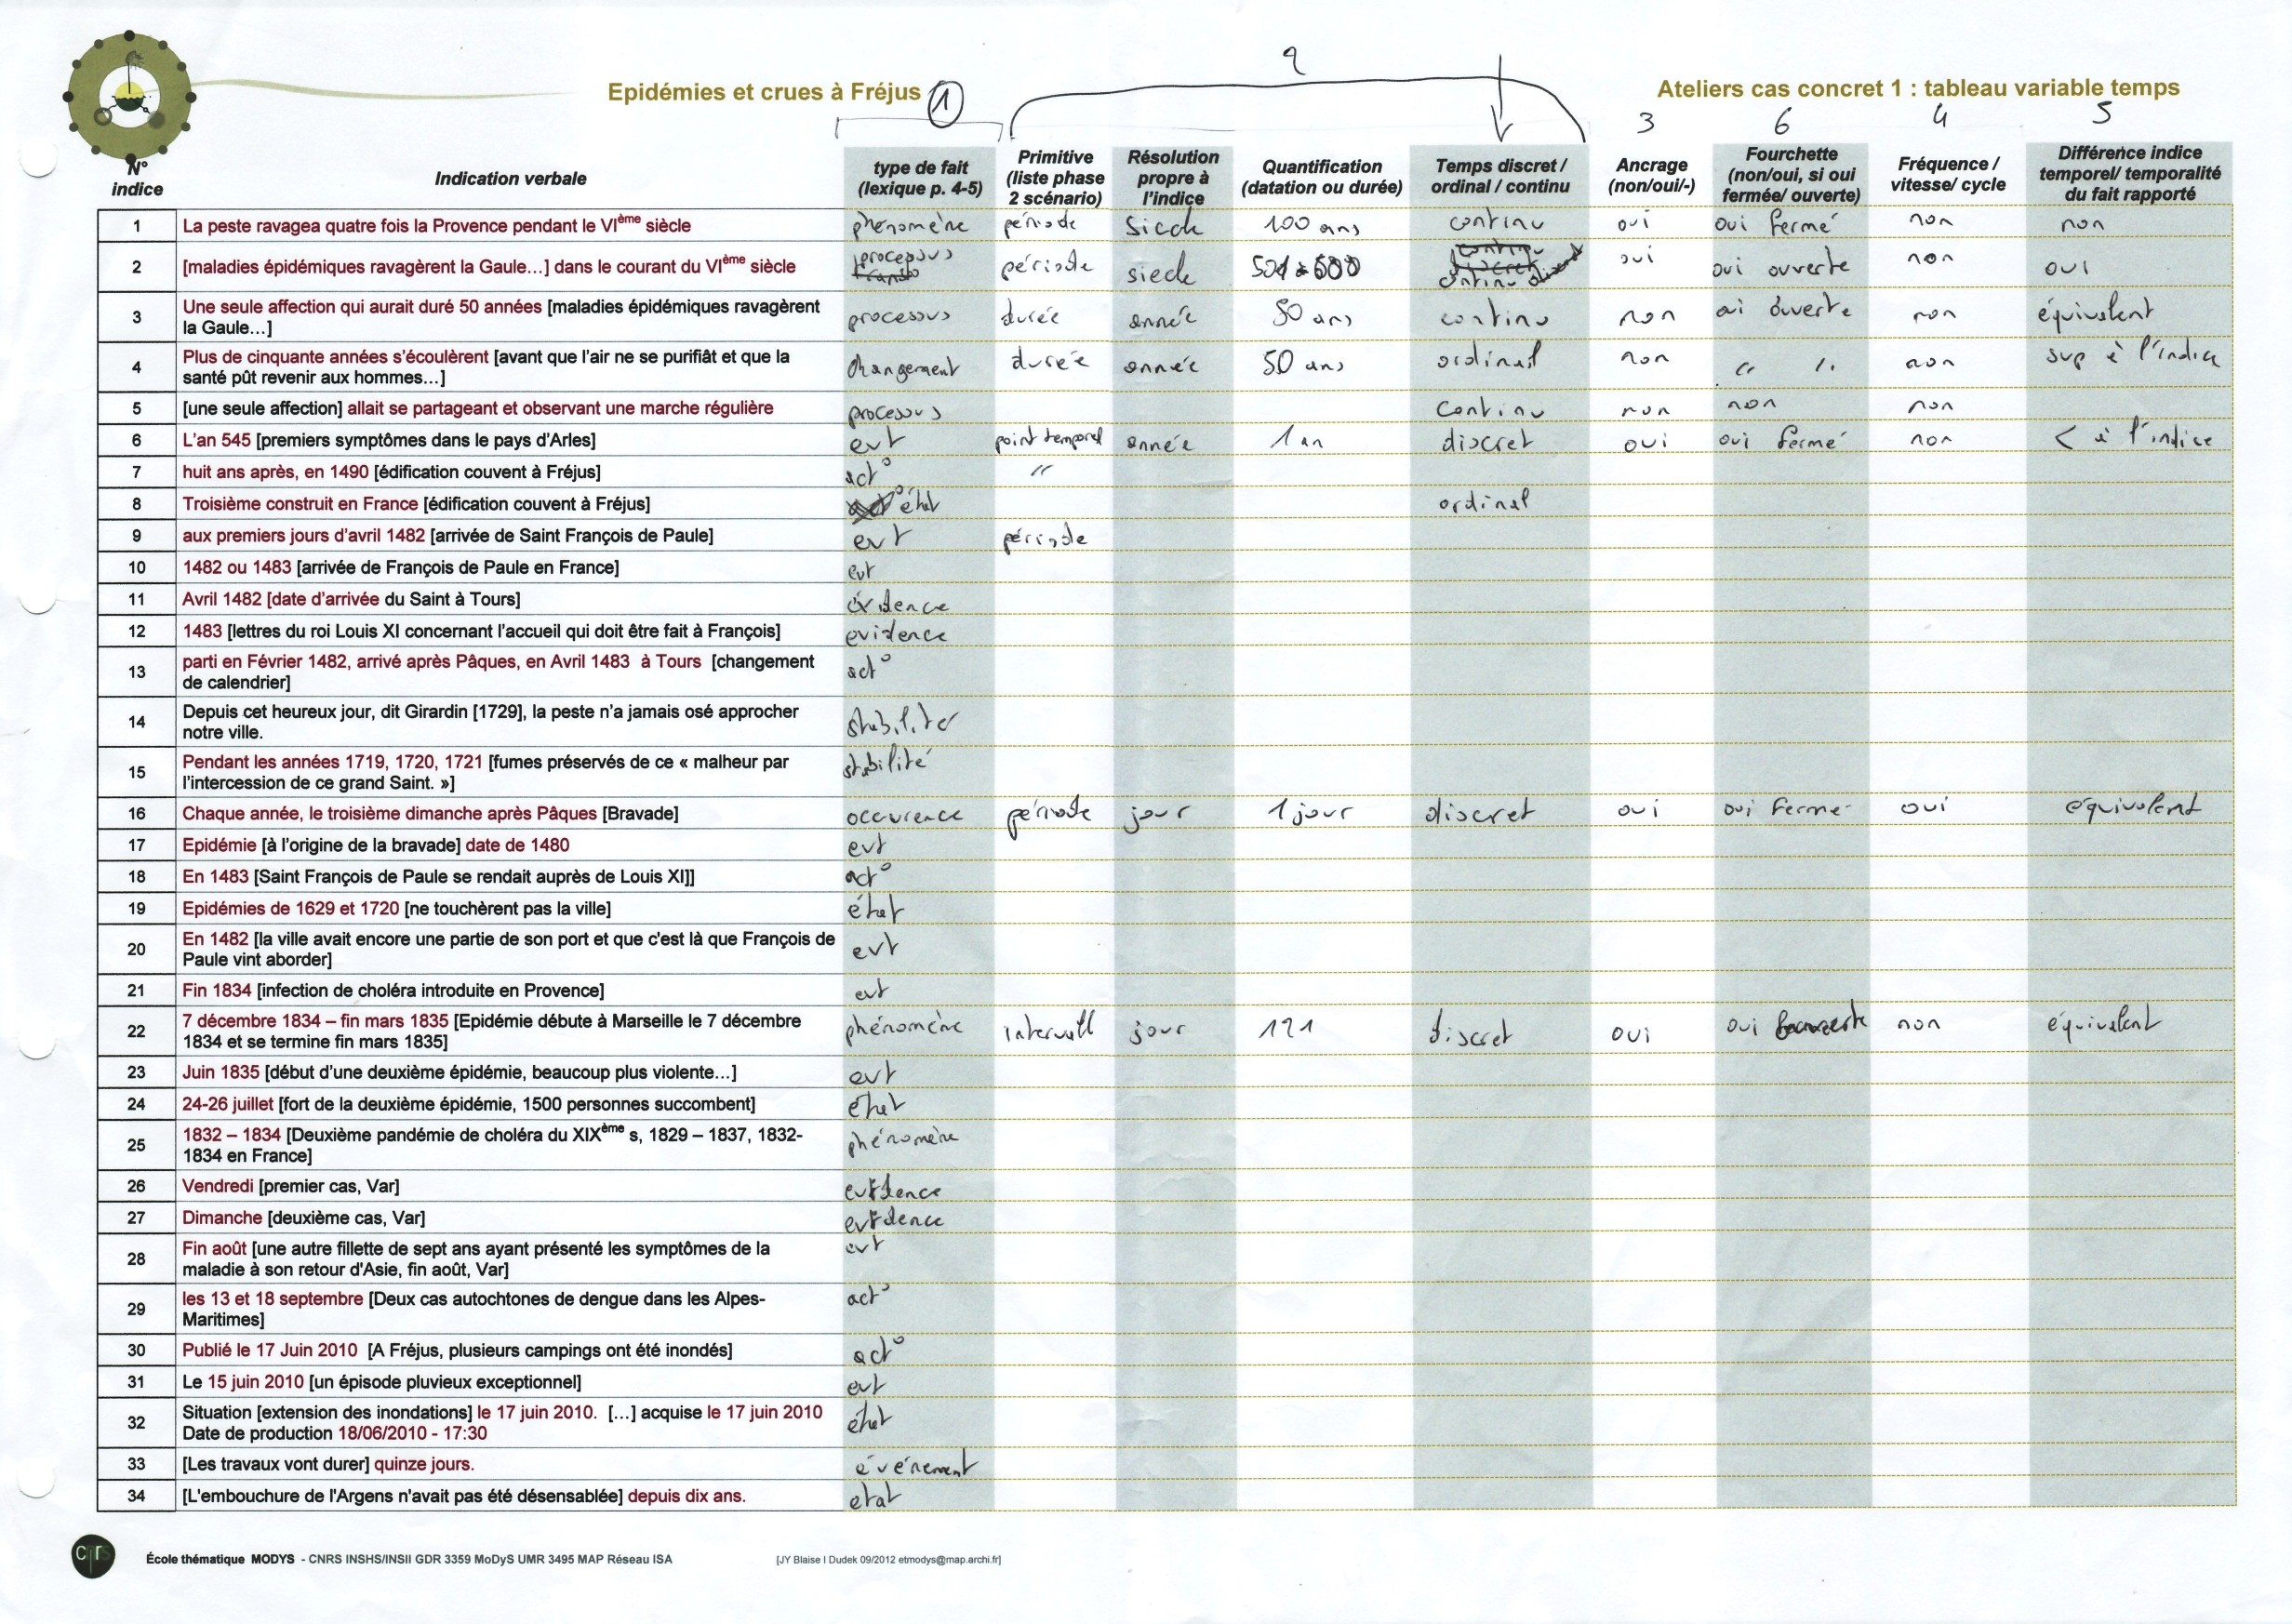 2
Epidémies et crues à Fréjus 1 Ateliers cas concret 1 : tableau variable temps
3 6 4 5
N° indice Indication verbale type de fait (lexique p. 4-5) Primitive (liste phase 2 scénario) Résolution propre à l'indice Quantification (datation ou durée) Temps discret / ordinal / continu Ancrage (non/oui/-) Fourchette (non/oui, si oui fermée/ ouverte) Fréquence / vitesse/ cycle Différence indice temporel/ temporalité du fait rapporté
1 La peste ravagea quatre fois la Provence pendant le VIème siècle phénomène période siecle 100 ans continu oui oui fermé non non
2 [maladies épidémiques ravagèrent la Gaule...] dans le courant du VIème siècle processus période siecle 501 à 600 oui oui ouverte non oui
3 Une seule affection qui aurait duré 50 années [maladies épidémiques ravagèrent
la Gaule...] processus durée année 50 ans continu non oui ouverte non équivalent
4 Plus de cinquante années s'écoulèrent [avant que l'air ne se purifiât et que la
santé pût revenir aux hommes...] changement durée année 50 ans ordinal non " " non sup à l'indice
5 [une seule affection] allait se partageant et observant une marche régulière processus continu non non non
6 L'an 545 [premiers symptômes dans le pays d'Arles] evt point temporel année 1 an discret oui oui fermé non < à l'indice
7 huit ans après, en 1490 [édification couvent à Fréjus] act° "
8 Troisième construit en France [édification couvent à Fréjus] état ordinal
9 aux premiers jours d'avril 1482 [arrivée de Saint François de Paule] evt période
10 1482 ou 1483 [arrivée de François de Paule en France] evt
11 Avril 1482 [date d'arrivée du Saint à Tours] évidence
12 1483 [lettres du roi Louis XI concernant l'accueil qui doit être fait à François] evidence
13 parti en Février 1482, arrivé après Pâques, en Avril 1483 à Tours [changement
de calendrier] act°
14 Depuis cet heureux jour, dit Girardin [1729], la peste n'a jamais osé approcher
notre ville. stabilité
15 Pendant les années 1719, 1720, 1721 [fumes préservés de ce « malheur par
l'intercession de ce grand Saint. »] stabilité
16 Chaque année, le troisième dimanche après Pâques [Bravade] occurence période jour 1 jour discret oui oui fermé oui équivalent
17 Epidémie [à l'origine de la bravade] date de 1480 evt
18 En 1483 [Saint François de Paule se rendait auprès de Louis XI]] act°
19 Epidémies de 1629 et 1720 [ne touchèrent pas la ville] état
20 En 1482 [la ville avait encore une partie de son port et que c'est là que François de
Paule vint aborder] evt
21 Fin 1834 [infection de choléra introduite en Provence] evt
22 7 décembre 1834 – fin mars 1835 [Epidémie débute à Marseille le 7 décembre
1834 et se termine fin mars 1835] phénomène intervall jour 121 discret oui oui ouverte non équivalent
23 Juin 1835 [début d'une deuxième épidémie, beaucoup plus violente...] evt
24 24-26 juillet [fort de la deuxième épidémie, 1500 personnes succombent] état
25 1832 – 1834 [Deuxième pandémie de choléra du XIXème s, 1829 – 1837, 1832-
1834 en France] phénomène
26 Vendredi [premier cas, Var] evidence
27 Dimanche [deuxième cas, Var] evidence
28 Fin août [une autre fillette de sept ans ayant présenté les symptômes de la
maladie à son retour d'Asie, fin août, Var] evt
29 les 13 et 18 septembre [Deux cas autochtones de dengue dans les Alpes-
Maritimes] act°
30 Publié le 17 Juin 2010 [A Fréjus, plusieurs campings ont été inondés] act°
31 Le 15 juin 2010 [un épisode pluvieux exceptionnel] evt
32 Situation [extension des inondations] le 17 juin 2010. [...] acquise le 17 juin 2010
Date de production 18/06/2010 - 17:30 état
33 [Les travaux vont durer] quinze jours. événement
34 [L'embouchure de l'Argens n'avait pas été désensablée] depuis dix ans. etat
cnrs École thématique MODYS - CNRS INSHS/INSII GDR 3359 MoDyS UMR 3495 MAP Réseau ISA [JY Blaise I Dudek 09/2012 etmodys@map.archi.fr]